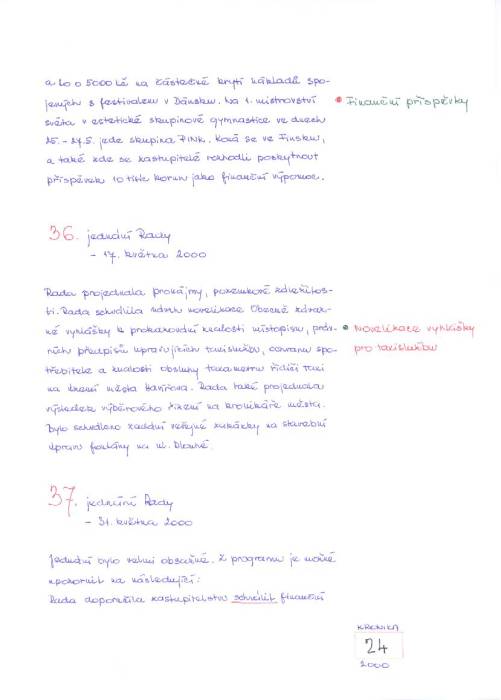 a to o 5000 Kč na částečné krytí nákladů spo-
jených s festivalem v Dánsku. Na 1. mistrovství
světa v estetické skupinové gymnastice ve dnech
25. - 27.5. jede skupina PINK. Koná se ve Finsku,
a také zde se zastupitelé rozhodli poskytnout
příspěvek 10 tisíc korun jako finanční výpomoc.
• Finanční příspěvky
36. jednání Rady
- 17. května 2000
Rada projednala pronájmy, pozemkové záležitos-
ti. Rada schválila návrh novelizace Obecně závaz-
né vyhlášky k prokazování znalostí místopisu, práv-
ních předpisů upravujících taxislužbu, ochranu spo-
třebitele a znalosti obsluhy taxametru řidiči taxi
na území města Havířova. Rada také projednala
výsledek výběrového řízení na kronikáře města.
Bylo schváleno zadání veřejné zakázky na stavební
úpravu fontány na ul. Dlouhé.
• Novelizace vyhlášky
pro taxislužbu
37. jednání Rady
- 31. května 2000
Jednání bylo velmi obsažné. Z programu je možné
upozornit na následující:
Rada doporučila zastupitelstvu schválit finanční
KRONIKA
24
2000